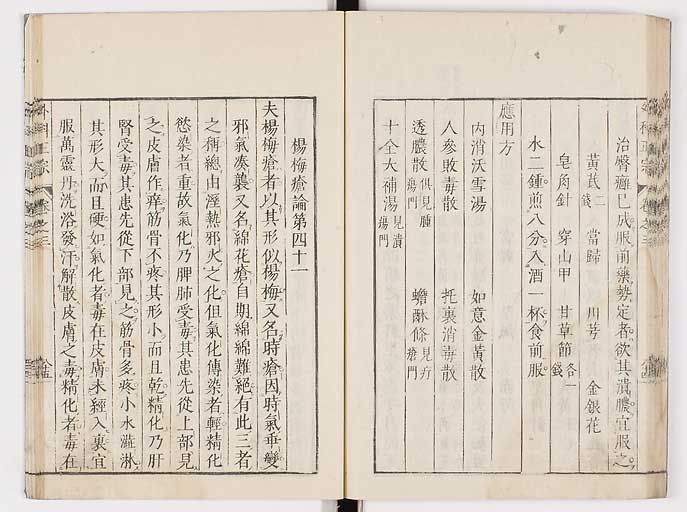 治臀癰已成服前藥勢定者欲其潰膿宜服之
黃芪二錢 當歸 川芎 金銀花
皂角針 穿山甲 甘草節各一錢
水二鍾煎八分入酒一杯食前服
應用方
內消沃雪湯 如意金黃散
人參敗毒散 托裏消毒散
透膿散俱見腫瘍門 蟾酥條見疔瘡門
十全大補湯見潰瘍門
楊梅瘡論第四十一
夫楊梅瘡者以其形似楊梅又名時瘡因時氣乖變
邪氣湊襲又名綿花瘡自期綿綿難絕有此三者
之稱總由溼熱邪火之化但氣化傳染者輕精化
慾染者重故氣化乃脾肺受毒其患先從上部見
之皮膚作癢筋骨不疼其形小而且乾精化乃肝
腎受毒其患先從下部見之筋骨多疼小水澁淋
其形大而且硬如氣化者毒在皮膚未經入裏宜
服萬靈丹洗浴發汗解散皮膚之毒精化者毒在